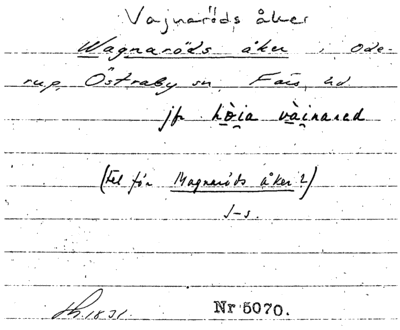 Vajnaröds åker
Wagnaröds åker, Ode-
rup, Östraby sn, Färs hd
jfr hòia vàinared
(Fel för Magnaröds åker?)
J-s.
1831. Nr 5070.